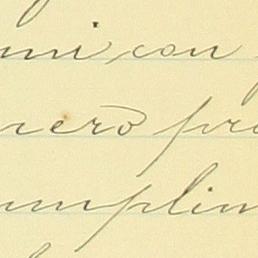 mi con
nerò pro
mplim